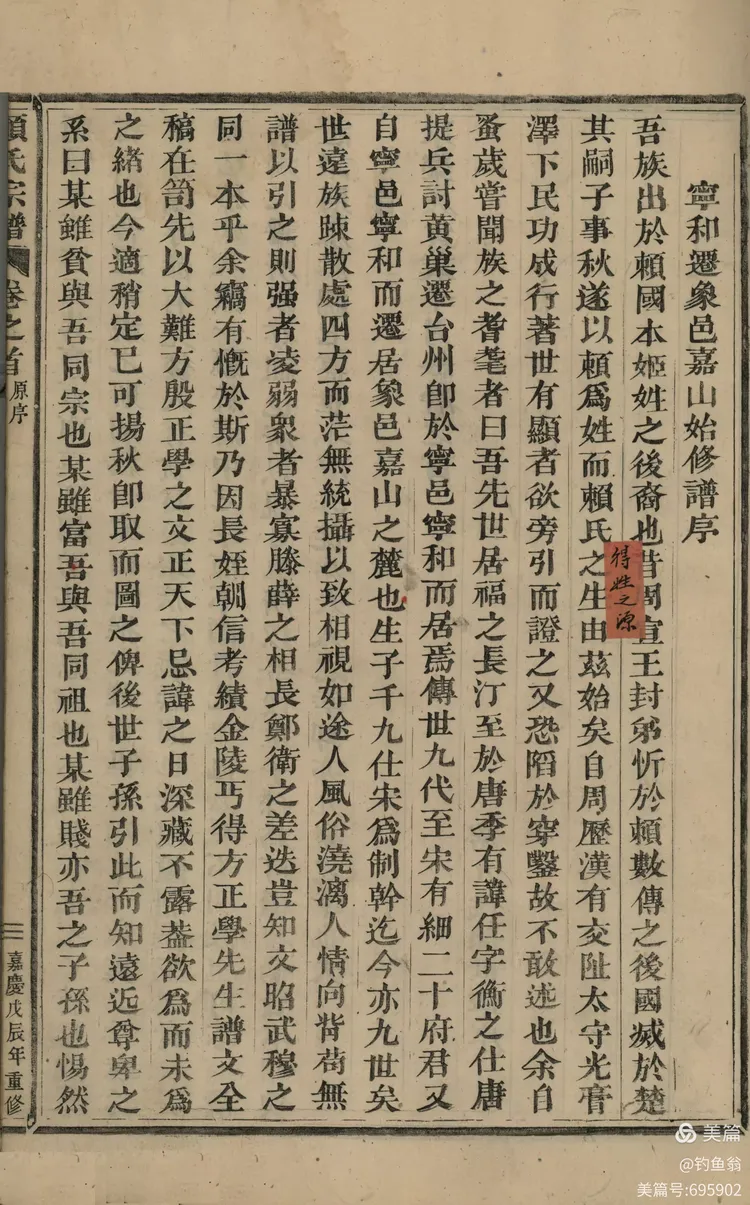 寧和遷象邑嘉山始修譜序
吾族出於賴國本姬姓之後裔也昔周宣王封弟忻於賴數傳之後國烕於楚
其嗣子事秋遂以賴爲姓而賴氏之生由茲始矣自周歷漢有交阯太守光膏
澤下民功成行著世有顯者欲旁引而證之又恐陷於穿鑿故不敢述也余自
蚤歲嘗聞族之耆耄者曰吾先世居福之長汀至於唐季有諱任字衡之仕唐
提兵討黃巢遷台州卽於寧邑寧和而居焉傳世九代至宋有細二十府君又
自寧邑寧和而遷居象邑嘉山之麓也生子千九仕宋爲制幹迄今亦九世矣
世遠族踈散處四方而茫無統攝以致相視如途人風俗澆漓人情向背茍無
譜以引之則强者凌弱衆者暴寡滕薛之相長鄭衛之差迭豈知文昭武穆之
同一本乎余竊有慨於斯乃因長姪朝信考績金陵丐得方正學先生譜文全
稿在笥先以大難方殷正學之文正天下忌諱之日深藏不露葢欲爲而未爲
之緒也今適稍定已可揚秋卽取而圖之俾後世子孫引此而知遠近尊卑之
系曰某雖貧與吾同宗也某雖富吾與吾同祖也某雖賤亦吾之子孫也惕然
賴氏宗譜 卷之首 原序 二 嘉慶戊辰年重修
得姓之源
美篇
@钓鱼翁
美篇号:695902